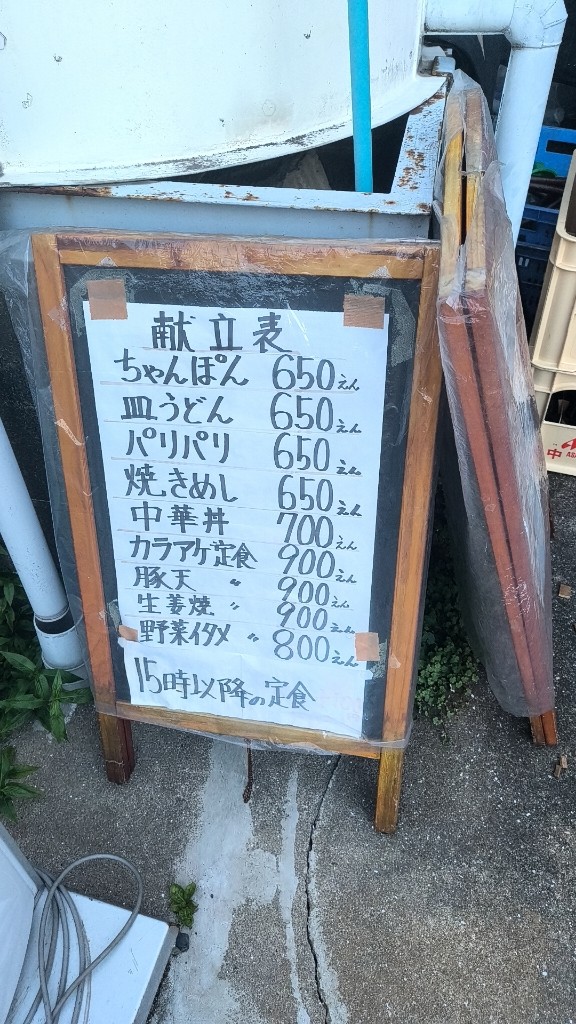 献立表
ちゃんぽん 650えん
皿うどん 650えん
パリパリ 650えん
焼きめし 650えん
中華丼 700えん
カラアゲ定食 900えん
豚天 〃 900えん
生姜焼 〃 900えん
野菜イタメ 〃 800えん
15時以降の定食
中